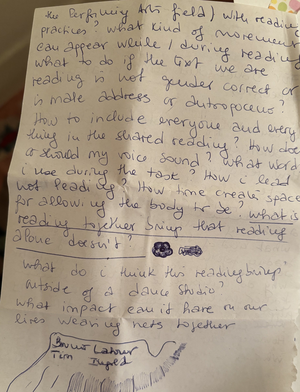 the Performing Arts field) with reading
practices: what kind of movement
can appear while / during reading
what to do if the text we are
reading is not gender correct or
is male address or antropocene?
How to include everyone and every
thing in the shared reading? How does
or should my voice sound? What words
i use during the task? How i lead
not leading? How time create space
for allowing the body to be? what is
reading together bring that reading
alone doesn't?
what do i think this reading brings?
outside of a dance studio?
what impact can it have on our
lives weaving nets together
Bruno Latour
Tim Ingold